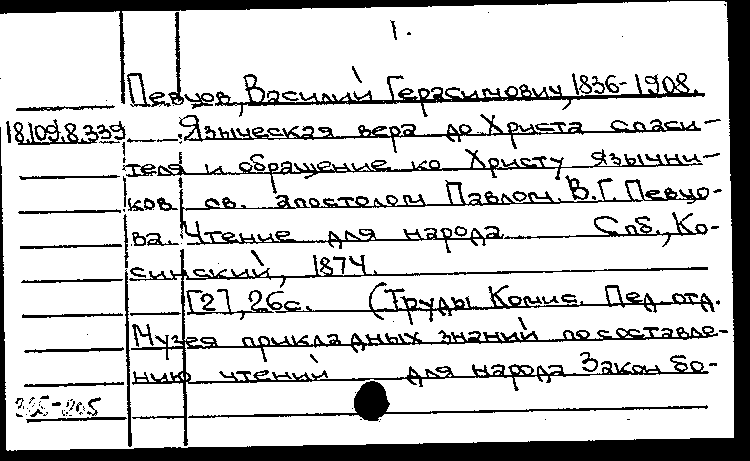 1.
Певцов, Василий Герасимович, 1836-1908.
18.109.8.339 Языческая вера до Христа спаси-
теля и обращение ко Христу язычни-
ков св. апостолом Павлом. В.Г. Певцо-
ва. Чтение для народа Спб., Ко-
синский, 1874.
[2], 26с. (Труды Комис. Пед. отд.
Музея прикладных знаний по составле-
нию чтений для народа Закон бо-